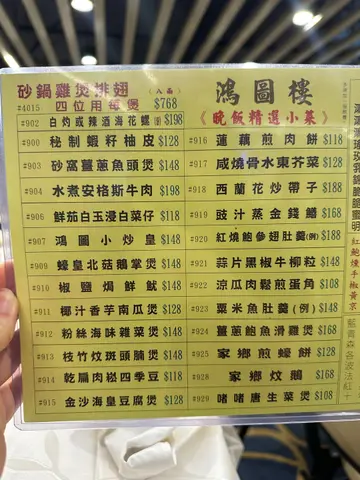 砂鍋雞煲排翅（八兩）
#4015 四位用每煲 $768
鴻圖樓
《晚飯精選小菜》
#902 白灼或辣酒海花螺(例) $198
#900 秘制蝦籽柚皮 $128
#903 砂窩薑蔥魚頭煲 $148
#904 水煮安格斯牛肉 $198
#906 鮮茄白玉浸白菜仔 $118
#907 鴻圖小炒皇 $148
#909 蠔皇北菇鵝掌煲 $148
#910 椒鹽焗鮮魷 $148
#911 椰汁香芋南瓜煲 $128
#912 粉絲海味雜菜煲 $148
#913 枝竹炆斑頭腩煲 $148
#914 乾扁肉崧四季豆 $118
#915 金沙海皇豆腐煲 $128
#916 蓮藕煎肉餅 $118
#917 咸燒骨水東芥菜 $128
#918 西蘭花炒帶子 $188
#919 豉汁蒸金錢鱔 $168
#920 紅燒鮑參翅肚羹(例) $188
#921 蒜片黑椒牛柳粒 $148
#922 涼瓜肉鬆煎蛋角 $108
#923 粟米魚肚羹(例) $148
#924 薑蔥鮑魚滑雞煲 $168
#925 家鄉煎蠔餅 $128
#928 家鄉炆鵝 $168
#929 啫啫唐生菜煲 $108